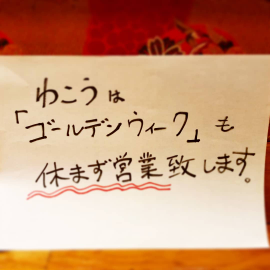 わこうは
「ゴールデンウィーク」も
休まず営業致します。